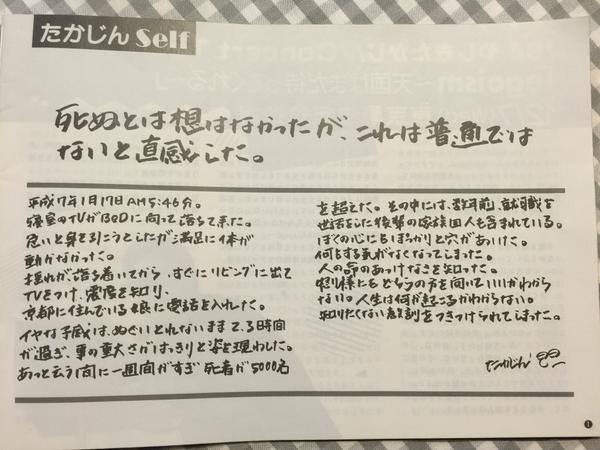 たかじん Self
死ぬとは想はなかったが、これは普通では
ないと直感した。
平成7年1月17日 AM5:46分。
寝室のTVがBEDに向って落ちて来た。
思いと身を引こうとしたが満足に体が
動かなかった。
揺れが落ち着いてから、すぐにリビングに出て
TVをつけ、震度を知り、
京都に住んでいる娘に電話を入れた。
イヤな予感は、ぬぐいとれないまま2、3時間
が過ぎ、事の重大さがはっきりと姿を現わした。
あっと云う間に一週間がすぎ 死者が5000名
を超えた。その中には、数年前、就職を
世話をした後輩の家族四人も含まれている。
ぼくの心にもぽっかりと穴があいた。
何もする気がなくなってしまった。
人の命のあっけなさを知った。
怒り様にも どちらの方を向いていいかわから
ない。人生は何が起こるかわからない。
知りたくない教訓をつきつけられてしまった。
たかじん
1